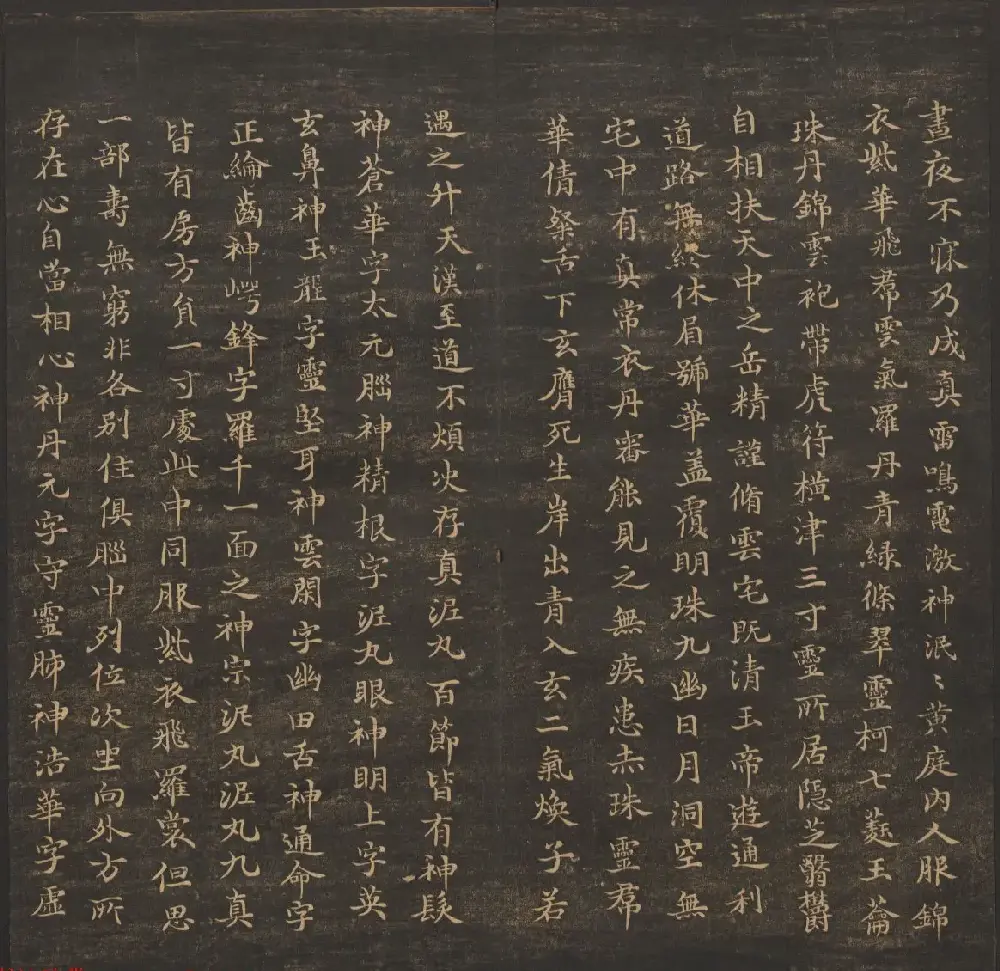 晝夜不寐乃成真雷鳴電激神泯〻黃庭內人服錦
衣紫華飛帬雲氣羅丹青綠條翠靈柯七蕤玉蘥
珠丹錦雲袍帶虎符橫津三寸靈所居隱芝翳鬱
自相扶天中之岳精謹脩雲宅既清玉帝遊通利
道路無終休眉號華蓋覆明珠九幽日月洞空無
宅中有真常衣丹審能見之無疾患赤珠靈帬
華倩粲舌下玄膺死生岸出青入玄二氣煥子若
遇之升天漢至道不煩決存真泥丸百節皆有神髮
神蒼華字太元腦神精根字泥丸眼神明上字英
玄鼻神玉壠字靈堅耳神雲閑字幽田舌神通命字
正綸齒神崿鋒字羅千一面之神宗泥丸泥丸九真
皆有房方負一寸處此中同服紫衣飛羅裳但思
一部壽無窮非各別住俱腦中列位次坐向外方所
存在心自當相心神丹元字守靈肺神浩華字虛